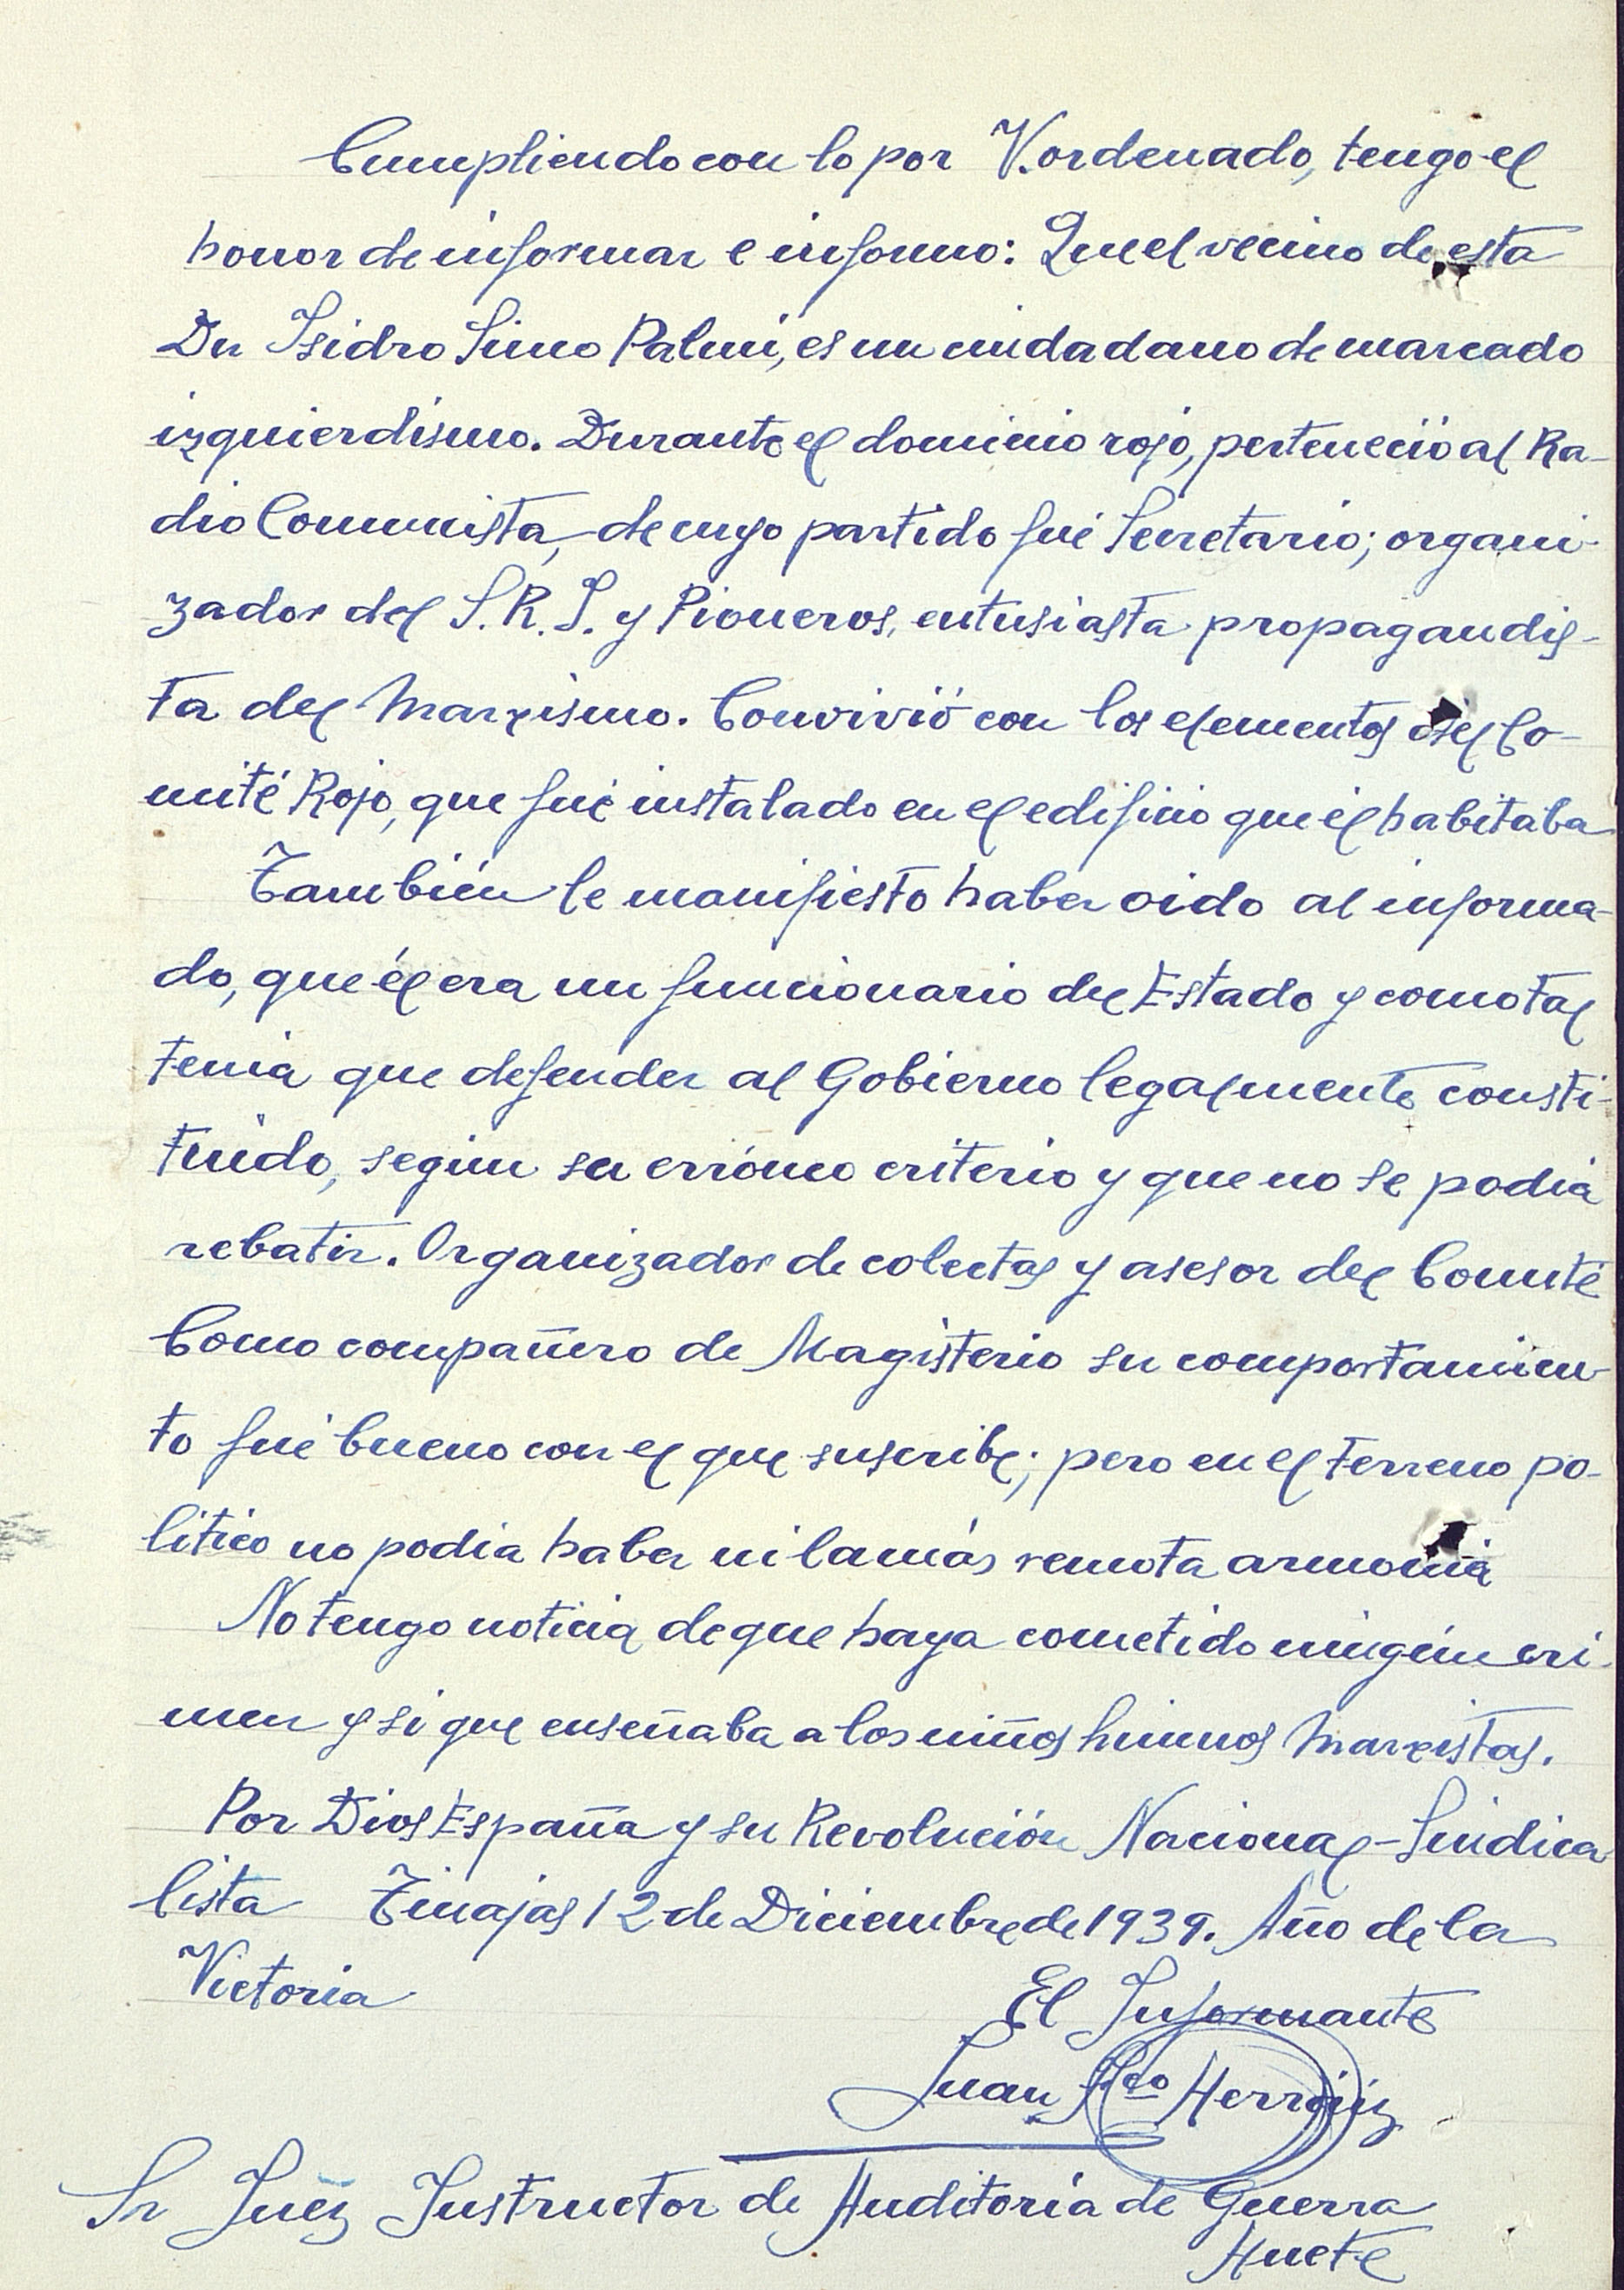 Cumpliendo con lo por V. ordenado, tengo el
honor de informar e informo: Que el vecino de esta
Dn Isidro Simo Palmi, es un ciudadano de marcado
izquierdismo. Durante el dominio rojo, perteneció al Ra-
dio Comunista, de cuyo partido fué Secretario; organi-
zador del S.R.I. y Pioneros, entusiasta propagandis-
ta del Marxismo. Convivió con los elementos del Co-
mité Rojo, que fué instalado en el edificio que él habitaba
También le manifiesto haber oido al informa-
do, que él era un funcionario del Estado y como tal
tenia que defender al Gobierno legalmente consti-
tuido, según su erróneo criterio y que no se podía
rebatir. Organizador de colectas y asesor del Comité
Como compañero de Magisterio su comportamien-
to fué bueno con el que suscribe; pero en el terreno po-
litico no podia haber ni la más remota armonía
No tengo noticia de que haya cometido ningún cri-
men y si que enseñaba a los niños himnos Marxistas.
Por Dios España y su Revolución Nacional-Sindica
lista Tinajas 12 de Diciembre de 1939. Año de la
Victoria
El Informante
Juan Fco Herráiz
Sr Juéz Instructor de Auditoría de Guerra
Huete